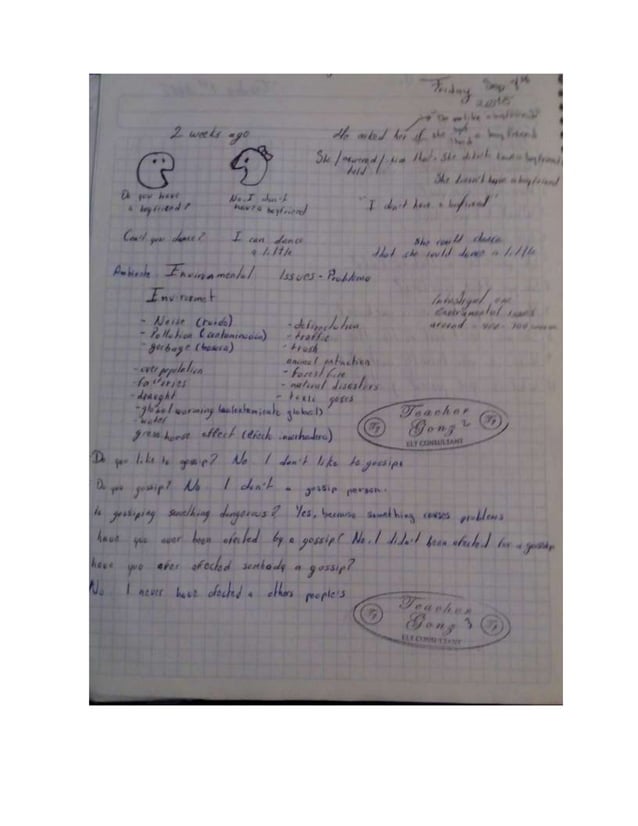 Friday
2015
2 weeks ago
He asked her if she had a boyfriend
She answered / him that she didn't have a boyfriend
told
She doesn't have a boyfriend
Do you have
a boyfriend?
No, I don't
have a boyfriend
"I don't have a boyfriend"
Can't you dance?
I can dance
a little
She could dance
that she could dance a little
Ambiente - Invironmental Issues - Problems
Invironmet
- Noise (ruido)
- Pollution (contaminación)
- garbage (basura)
- overpopulation
- factories
- draught
- global warming (calentamiento global)
- water
green house effect (efecto invernadero)
- deforestation
- traffic
- trash
animal extinction
- Forest fire
- natural disasters
- toxic gases
Teacher
Gonz 2
ELT CONSULTANT
Do you like to gossip? No I don't like to gossips
Do you gossip? No I don't a gossip person.
Is gossiping something dangerous? Yes, because something causes problems
have you ever been afected by a gossip? No, I didn't been afected for a gossip
have you ever afected sombody a gossip?
No I never have afected a others people's
Teacher
Gonz 3
ELT CONSULTANT